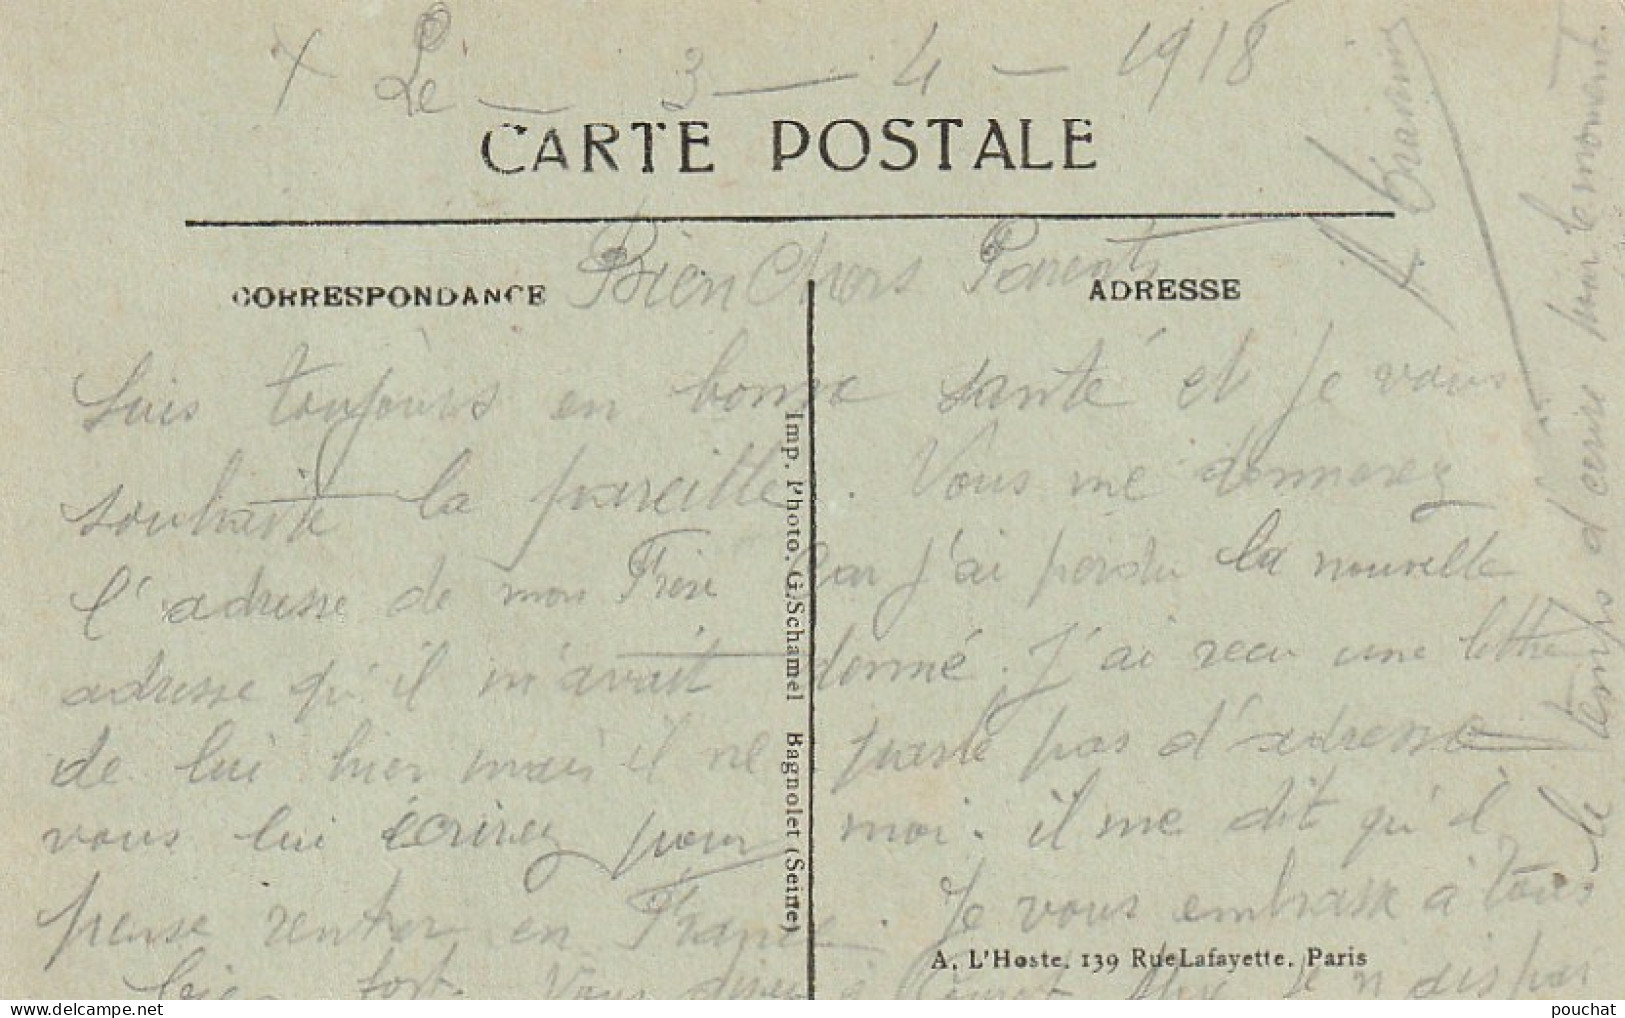 Le - 3 - 4 - 1918
CARTE POSTALE
CORRESPONDANCE
ADRESSE
Bien Chers Parents
Suis toujours en bonne santé et je vous
souhaite la pareille. Vous me donnerez
l'adresse de mon Frère Car j'ai perdu la nouvelle
adresse qu'il m'avait donné. J'ai reçu une lettre
de lui hier mais il ne parle pas d'adresse
vous lui écrirez pour moi. il me dit qu'il
pense rentrer en France. Je vous embrasse à tous
bien fort. Vous à n'ai pas
le temps d'écrire pour le moment.
Imp. Photo. G. Schamel Bagnolet (Seine)
A. L'Hoste, 139 Rue Lafayette, Paris
pouchat